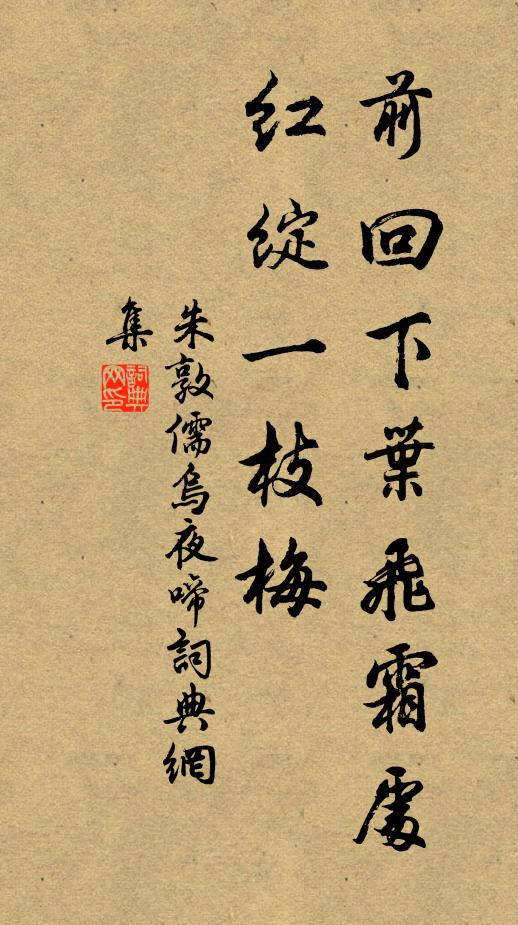 前回下葉飛霜處
红綻一枝梅
朱敦儒烏夜啼詞典網
集
詞典
网印